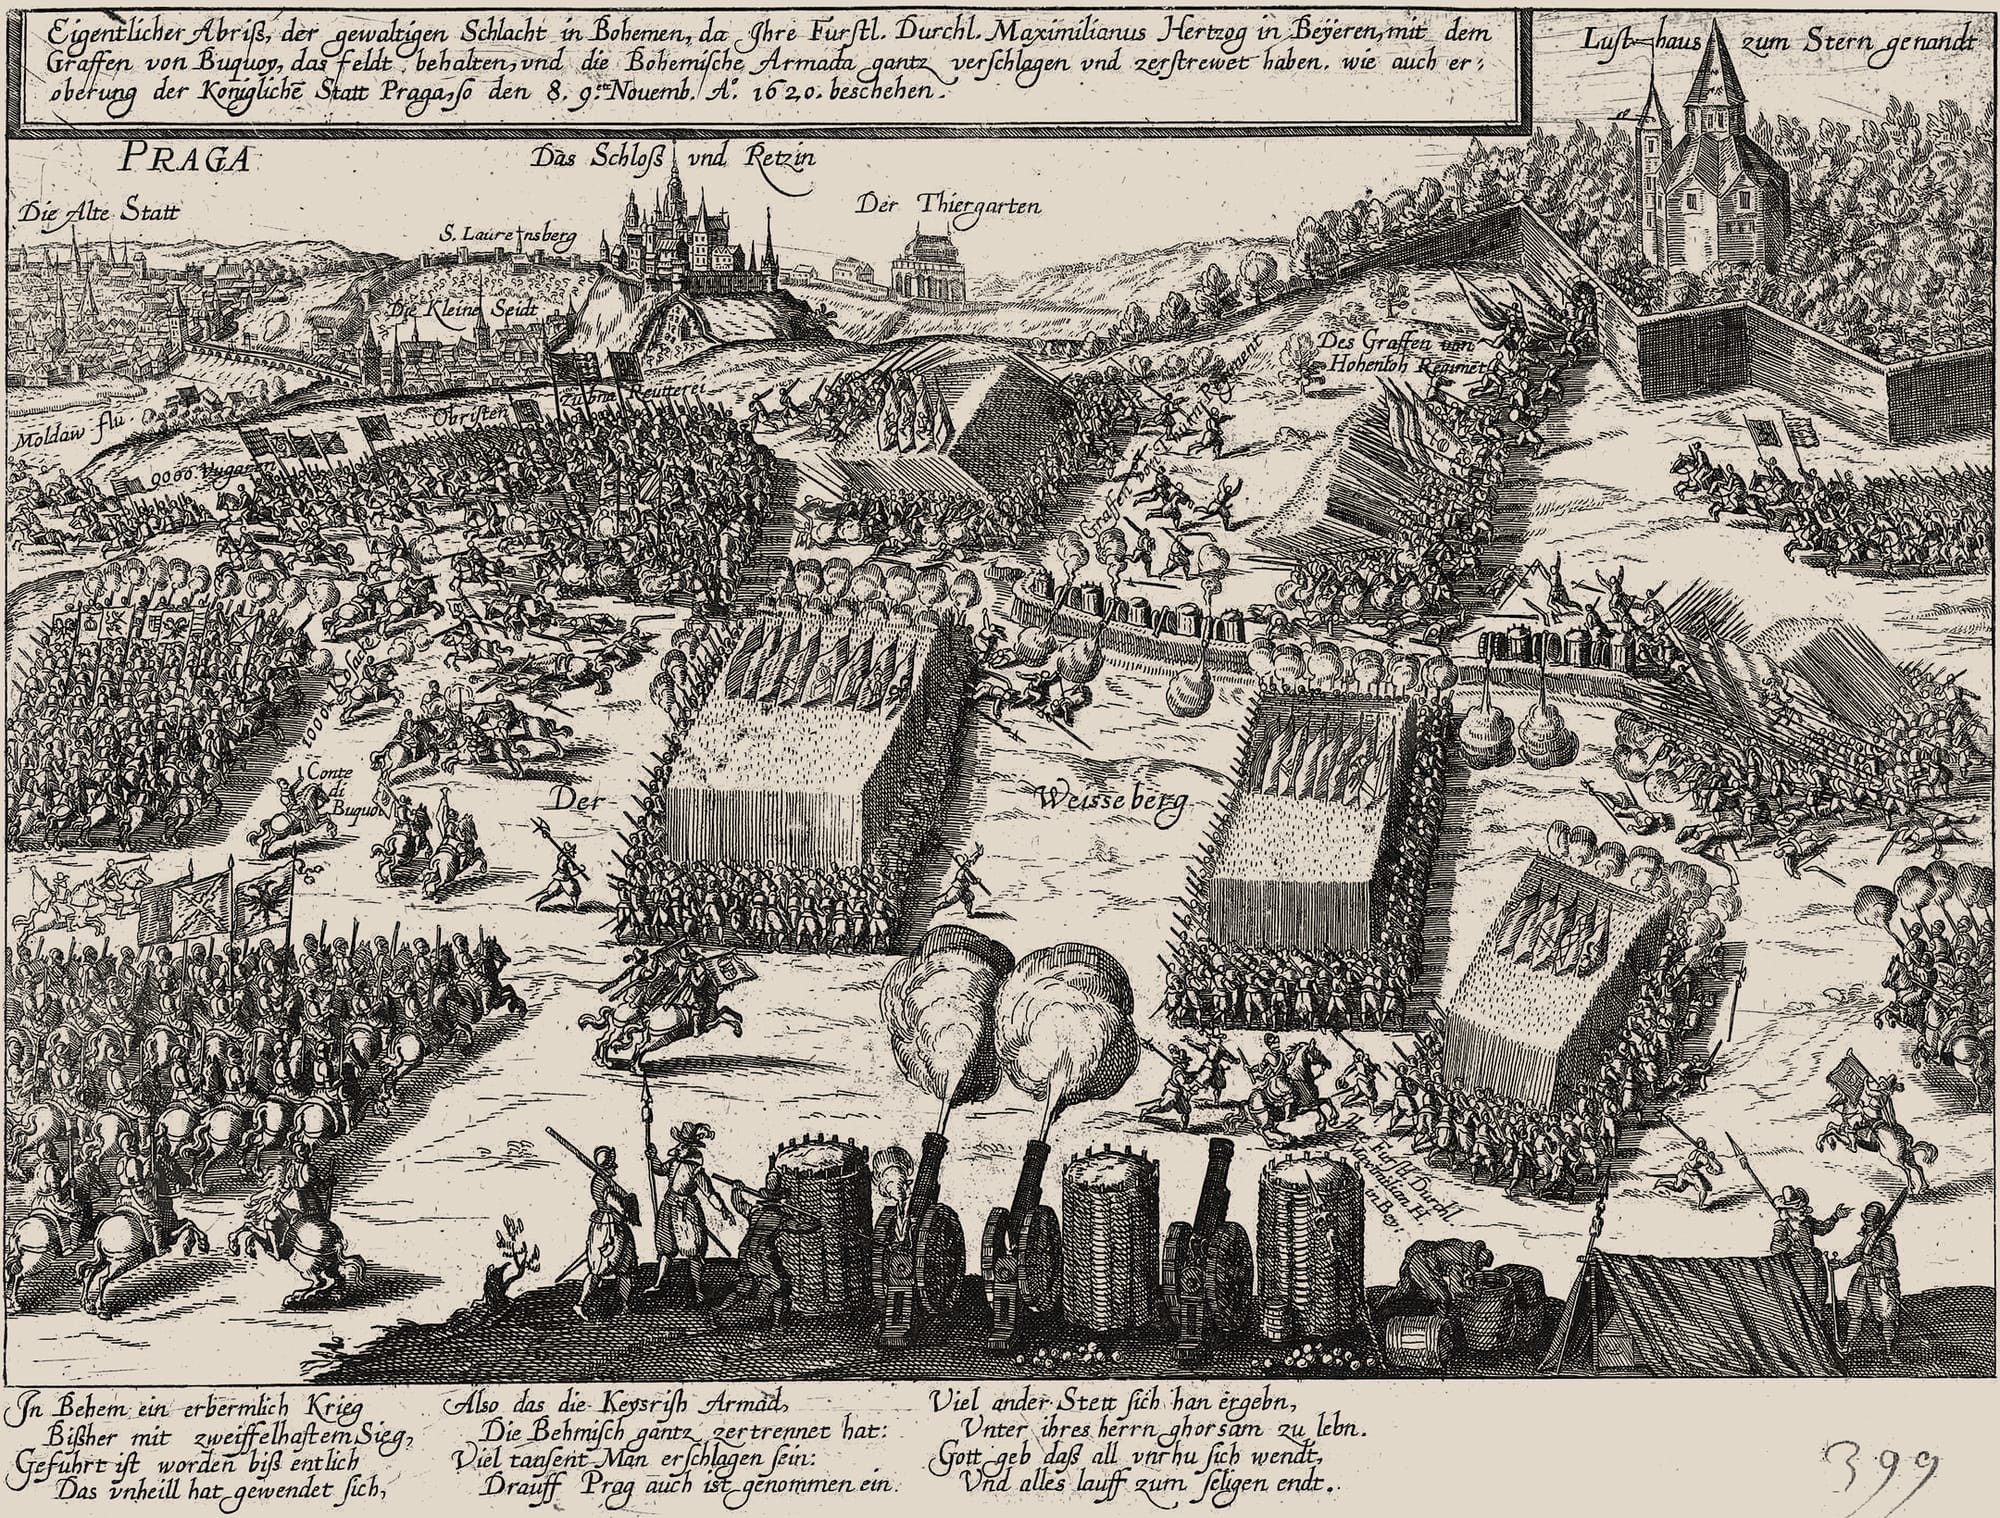 Eigentlicher Abriß, der gewaltigen Schlacht in Bohemen, da Ihre Furstl. Durchl. Maximilianus Hertzog in Beÿeren, mit dem
Graffen von Buquoy, das feldt behalten, vnd die Bohemische Armada gantz verschlagen vnd zerstrewet haben. wie auch er,
oberung der Koniglichē Statt Praga, so den 8. 9.ten Nouemb. Aº. 1620. beschehen.
Lust haus zum Stern genandt
PRAGA
Das Schloß vnd Retzin
Die Alte Statt
Der Thiergarten
S. Laurensberg
Die Kleine Seidt
Des Graffen von
Hohenloh Regimet
Regiment
Graffen von
Moldaw flu
Obristen Reutterei
9000 Vngaren
1000
Conte
di
Buquoi
Der Weisse berg
Ihr Fürstl. Durchl.
Maximilian H.
in Bey.
In Behem ein erbermlich Krieg
Bißher mit zweiffelhaftem Sieg,
Gefuhrt ist worden biß entlich
Das vnheill hat gewendet sich,
Also das die Keysrish Armad,
Die Behmisch gantz zertrennet hat:
Viel tausent Man erschlagen sein:
Drauff Prag auch ist genommen ein.
Viel ander Stett sich han ergebn,
Vnter ihres herrn ghorsam zu lebn.
Gott geb daß all vnrhu sich wendt,
Vnd alles lauff zum seligen endt.
399